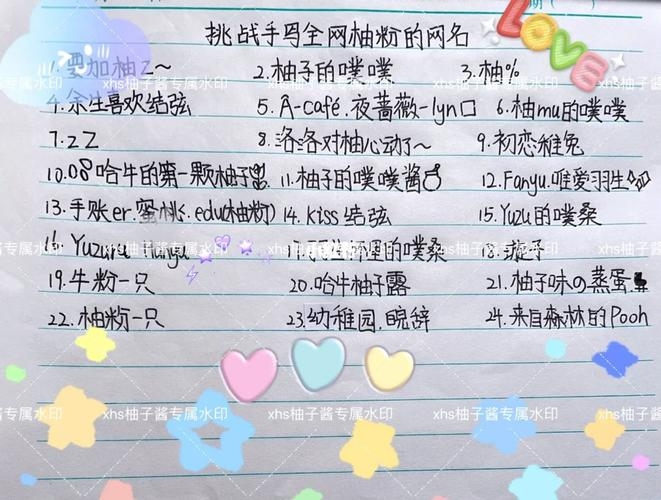 挑战手写全网柚粉的网名
1. 要加柚Z～ 2.柚子的噗噗 3.柚%
4.余生喜欢结弦 5.A-café.夜蔷薇-lyn口 6.柚mu的噗噗
7.2Z 8.洛洛对柚心动了～ 9.初恋稚兔
10. 哈牛的第一颗柚子 11.柚子的噗噗酱 12.Fanyu.唯爱羽生
13.手账er.蜜桃(.edu柚粉) 14.kiss结弦 15.Yuzu的噗桑
Yuzuru 的噗桑
19.牛粉一只 20.哈牛柚子露 21.柚子味の蒸蛋
22.柚粉一只 23.幼稚园.晥辞 24.来自森林的Pooh
LOVE
xhs柚子酱专属水印